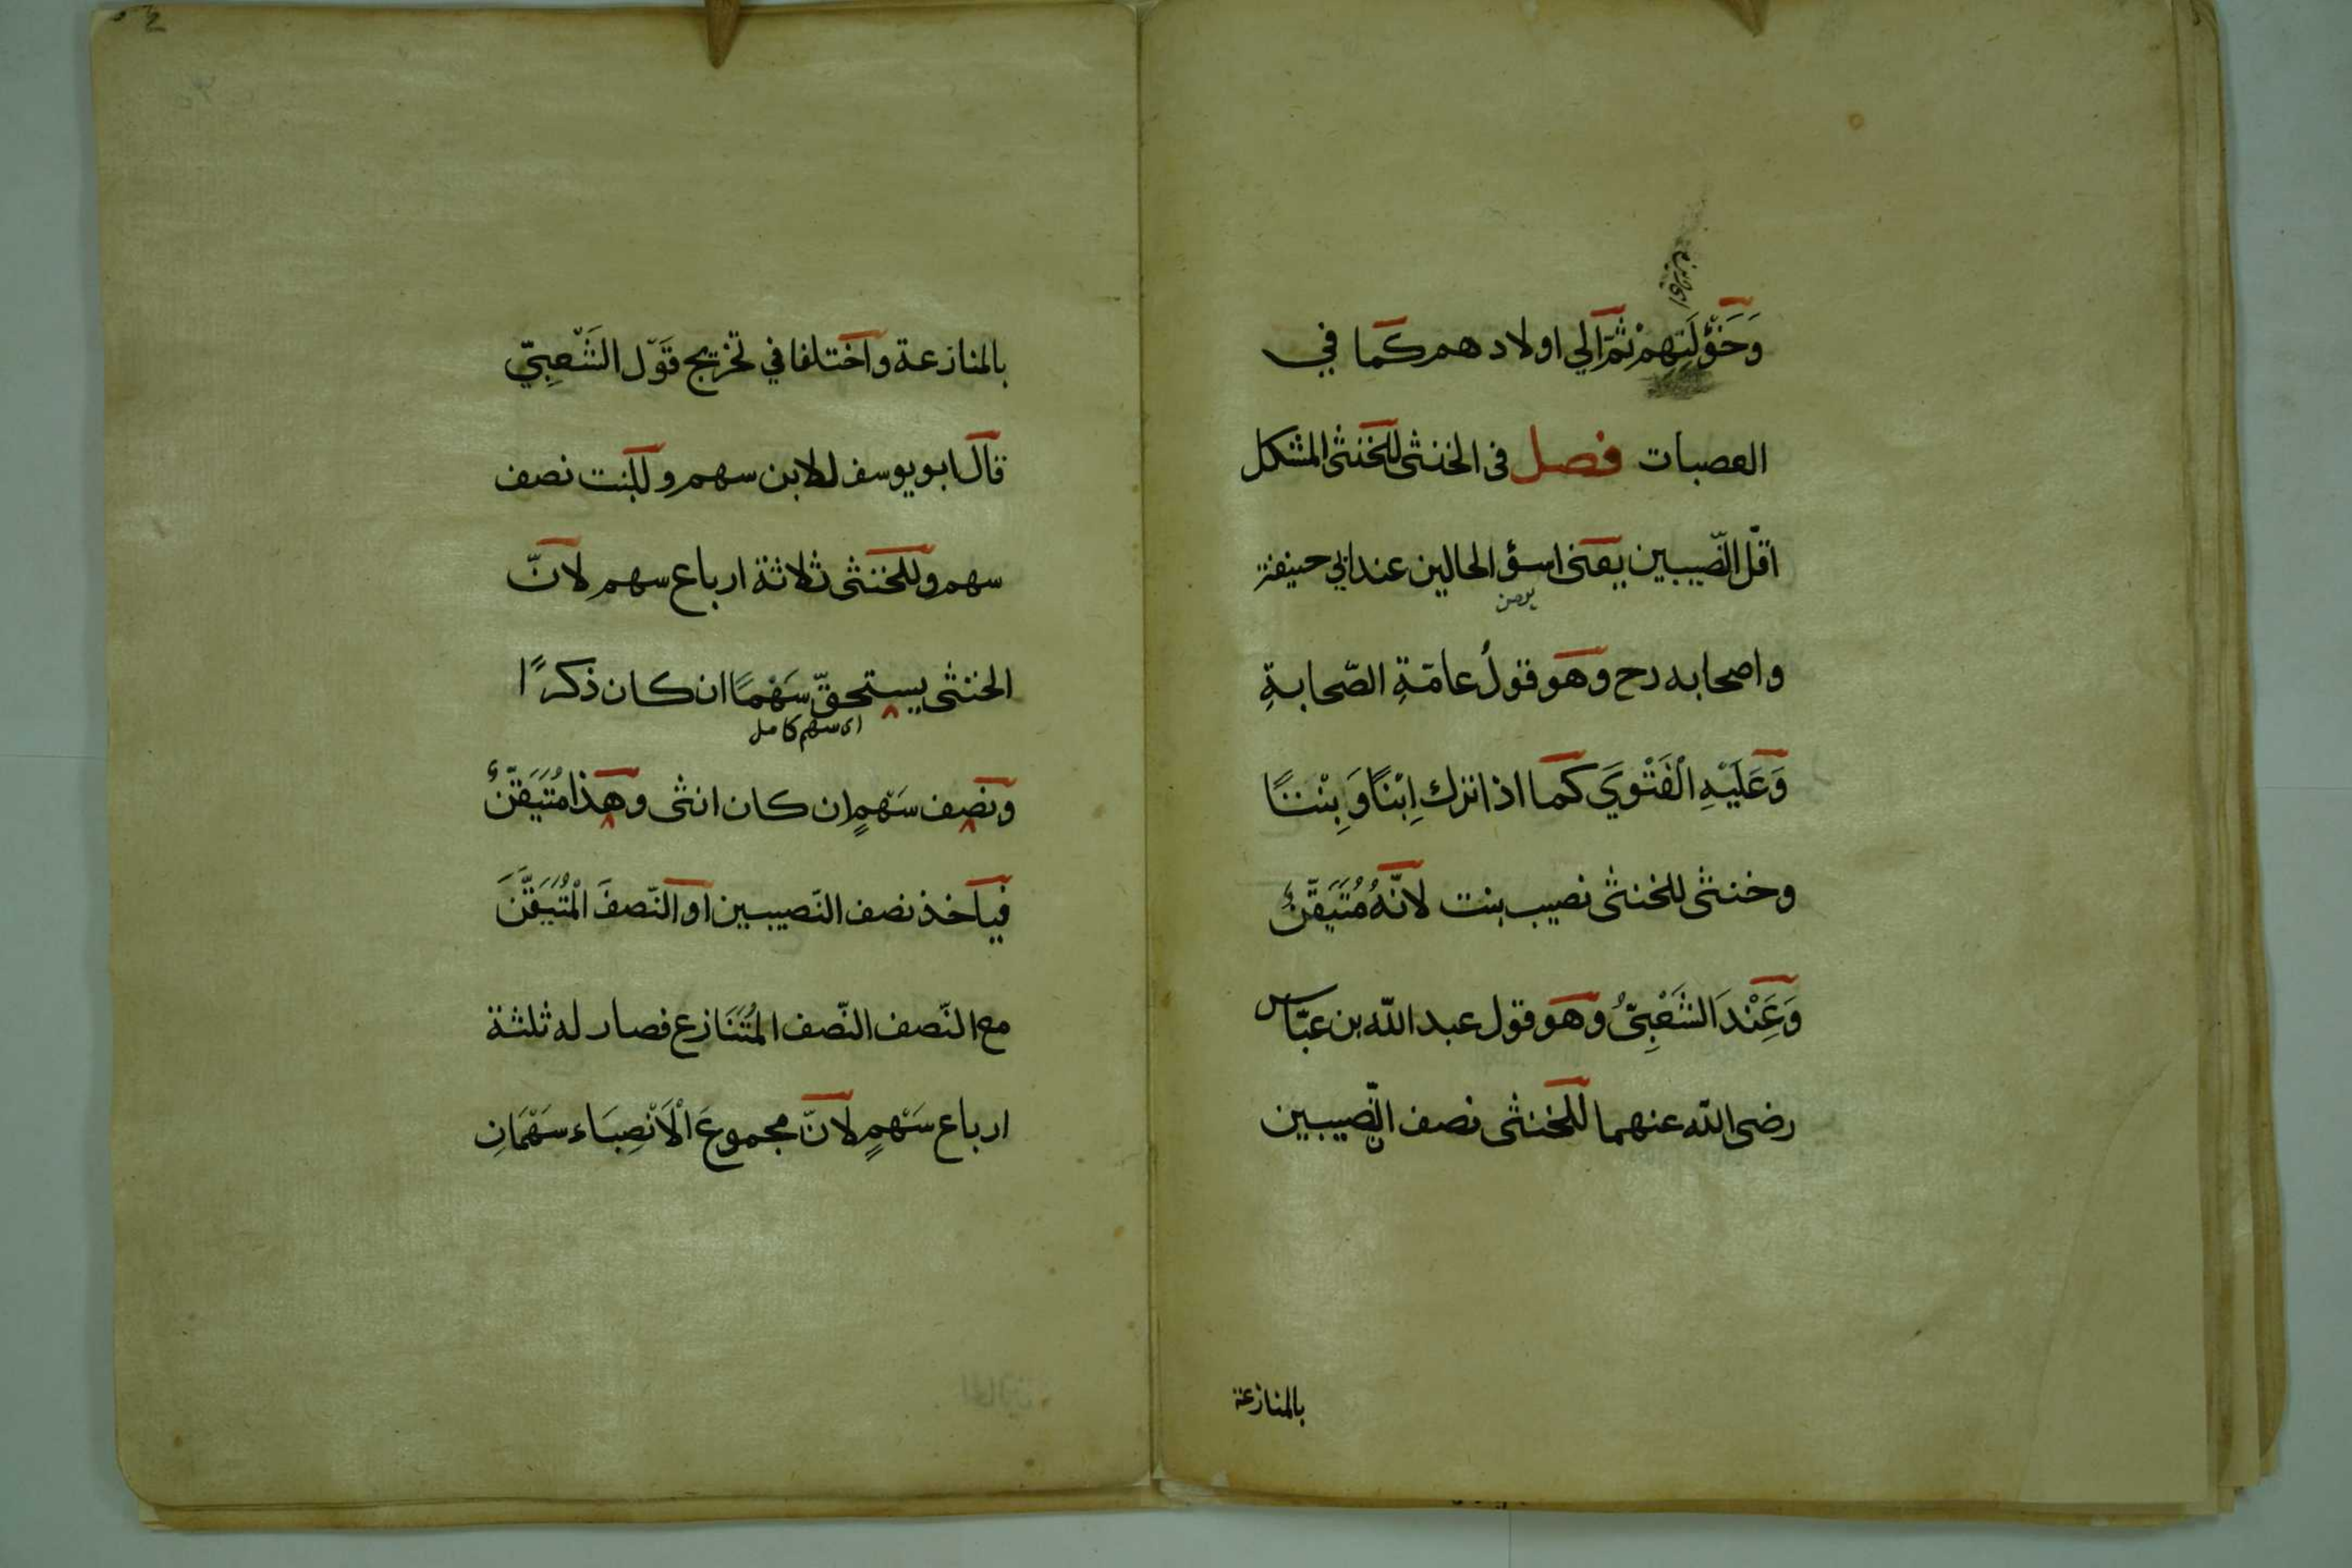 وَخَؤُلَتِهِمْ ثُمَّ الي اولادهم كما في
العصبات فصل فى الخنثى للخنثى المشكل
اقلّ النّصيبين يعنى اسؤ الحالين عند ابي حنيفة
واصحابه رح وهو قولُ عامّةِ الصّحابةِ
وَعَلَيْهِ الْفَتْوَي كما اذا ترك اِبْنًا وَبِنْتًا
وخنثى للخنثى نصيب بنت لانّهُ مُتَيَقَّنٌ
وَعِنْدَ الشَّعْبِىِّ وهو قول عبد اللّه بن عبّاس
رضى اللّه عنهما للخنثى نصف النّصيبين
بالمنازعة
بالمنازعة واختلفا في تخريج قَوْل الشَّعْبِيّ
قال ابو يوسف للابن سهم وللبنت نصف
سهم وللخنثى ثلاثة ارباع سهم لانّ
الخنثى يستحقّ سَهْمًا ان كان ذكرًا
اى سهم كامل
ونصف سَهْمٍ ان كان انثى وهذا مُتَيَقَّنٌ
فياخذ نصف النّصيبين او النّصفَ الْمُتَيَقَّنَ
مع النّصف النّصف المُتَنَازع فصار له ثلثة
ارباع سَهْمٍ لانّ مجموعَ الْاَنْصِبَاء سَهْمَانِ